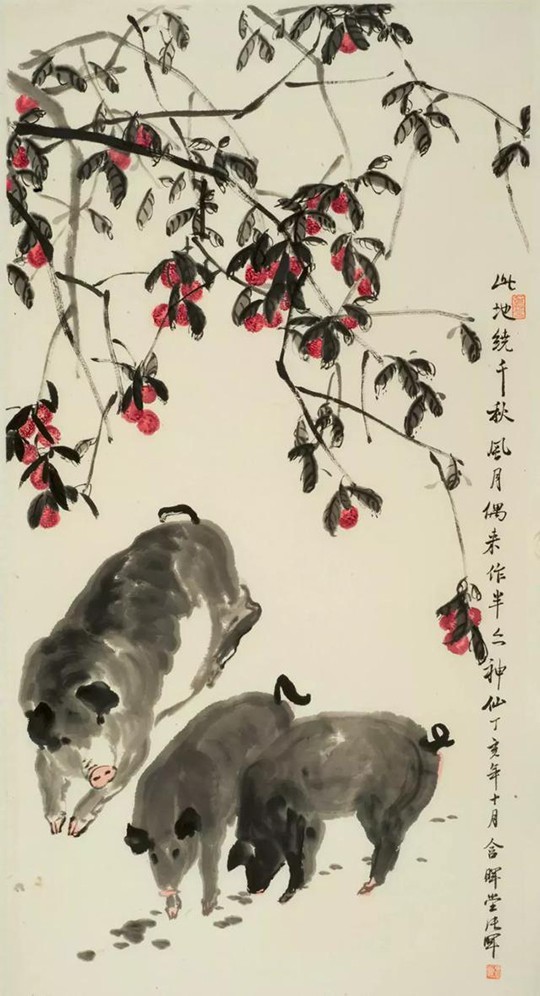 此地绕千秋风月偶来作半个神仙丁亥年十月含晖堂晖